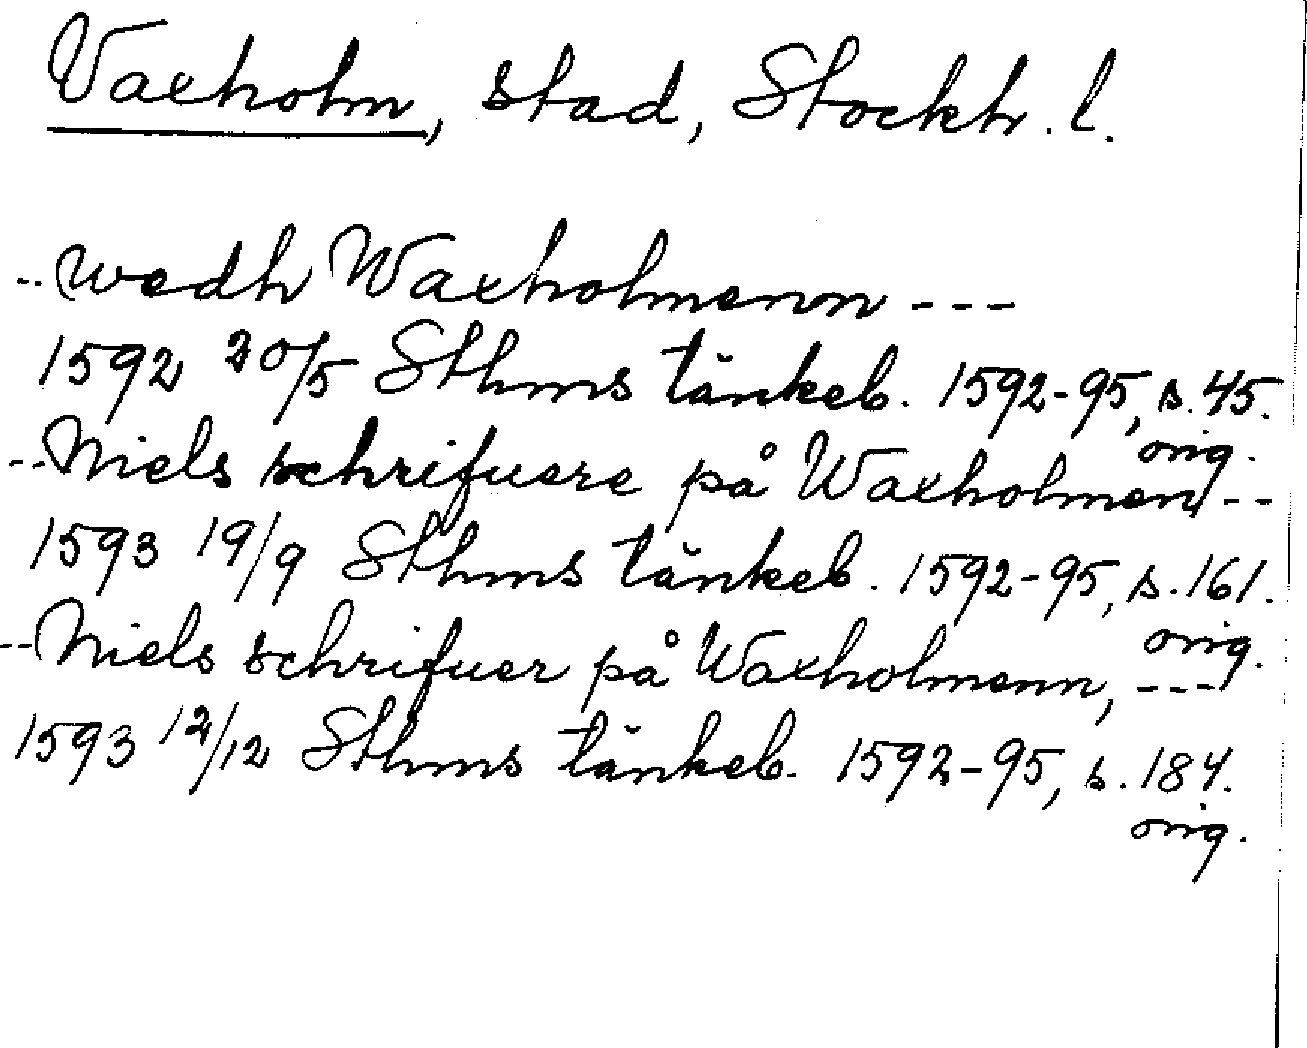 Vaxholm, stad, Stockh. l.
-- wedh Waxholmenn ---
1592 20/5 Sthms tänkeb. 1592-95, s. 45.
orig.
-- Niels schrifuere på Waxholmen --
1593 19/9 Sthms tänkeb. 1592-95, s. 161.
orig.
-- Niels schrifuer på Waxholmenn, ---
1593 12/12 Sthms tänkeb. 1592-95, s. 184.
orig.